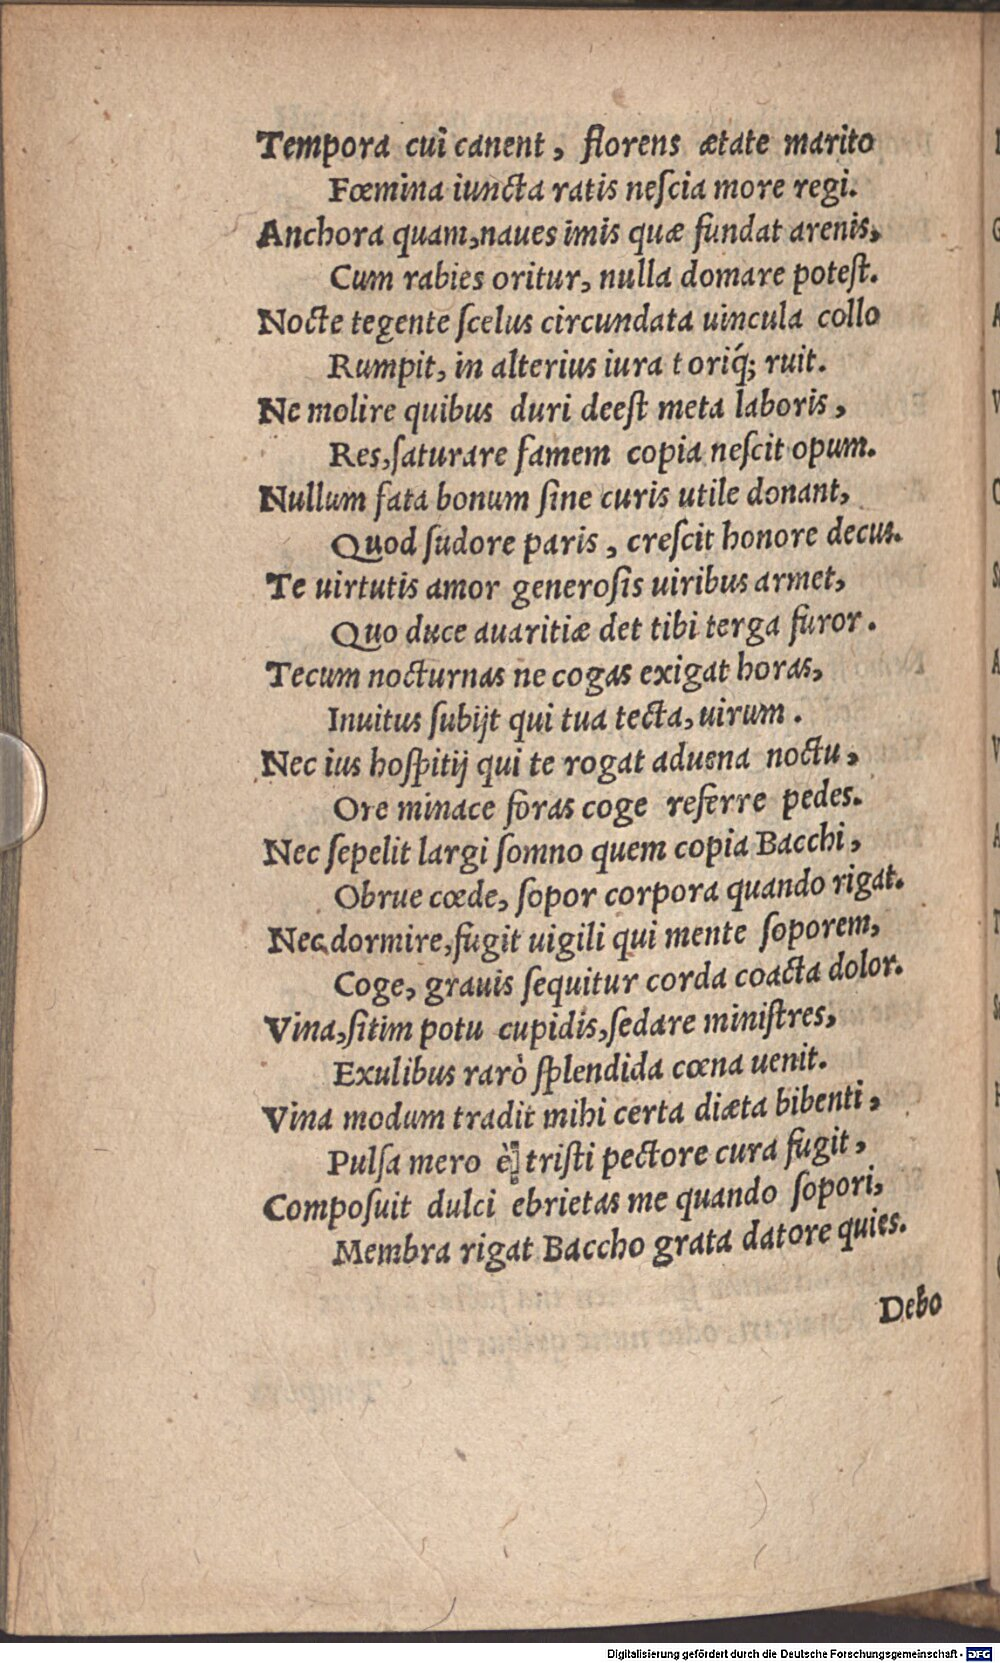 Tempora cui canent, florens ætate marito
Fœmina iuncta ratis neſcia more regi.
Anchora quam, naues imis quæ fundat arenis,
Cum rabies oritur, nulla domare poteſt.
Nocte tegente ſcelus circundata uincula collo
Rumpit, in alterius iura toriq́; ruit.
Ne molire quibus duri deeſt meta laboris,
Res, ſaturare famem copia neſcit opum.
Nullum fata bonum ſine curis utile donant,
Quod ſudore paris, creſcit honore decus.
Te uirtutis amor generoſis uiribus armet,
Quo duce auaritiæ det tibi terga furor.
Tecum nocturnas ne cogas exigat horas,
Inuitus ſubijt qui tua tecta, uirum.
Nec ius hoſpitij qui te rogat aduena noctu,
Ore minace foras coge referre pedes.
Nec ſepelit largi ſomno quem copia Bacchi,
Obrue cœde, ſopor corpora quando rigat.
Nec dormire, fugit uigili qui mente ſoporem,
Coge, grauis ſequitur corda coacta dolor.
Vina, ſitim potu cupidis, ſedare miniſtres,
Exulibus rarò ſplendida cœna uenit.
Vina modum tradit mihi certa diæta bibenti,
Pulſa mero è triſti pectore cura fugit,
Compoſuit dulci ebrietas me quando ſopori,
Membra rigat Baccho grata datore quies.
Debo
Digitalisierung gefördert durch die Deutsche Forschungsgemeinschaft - DFG